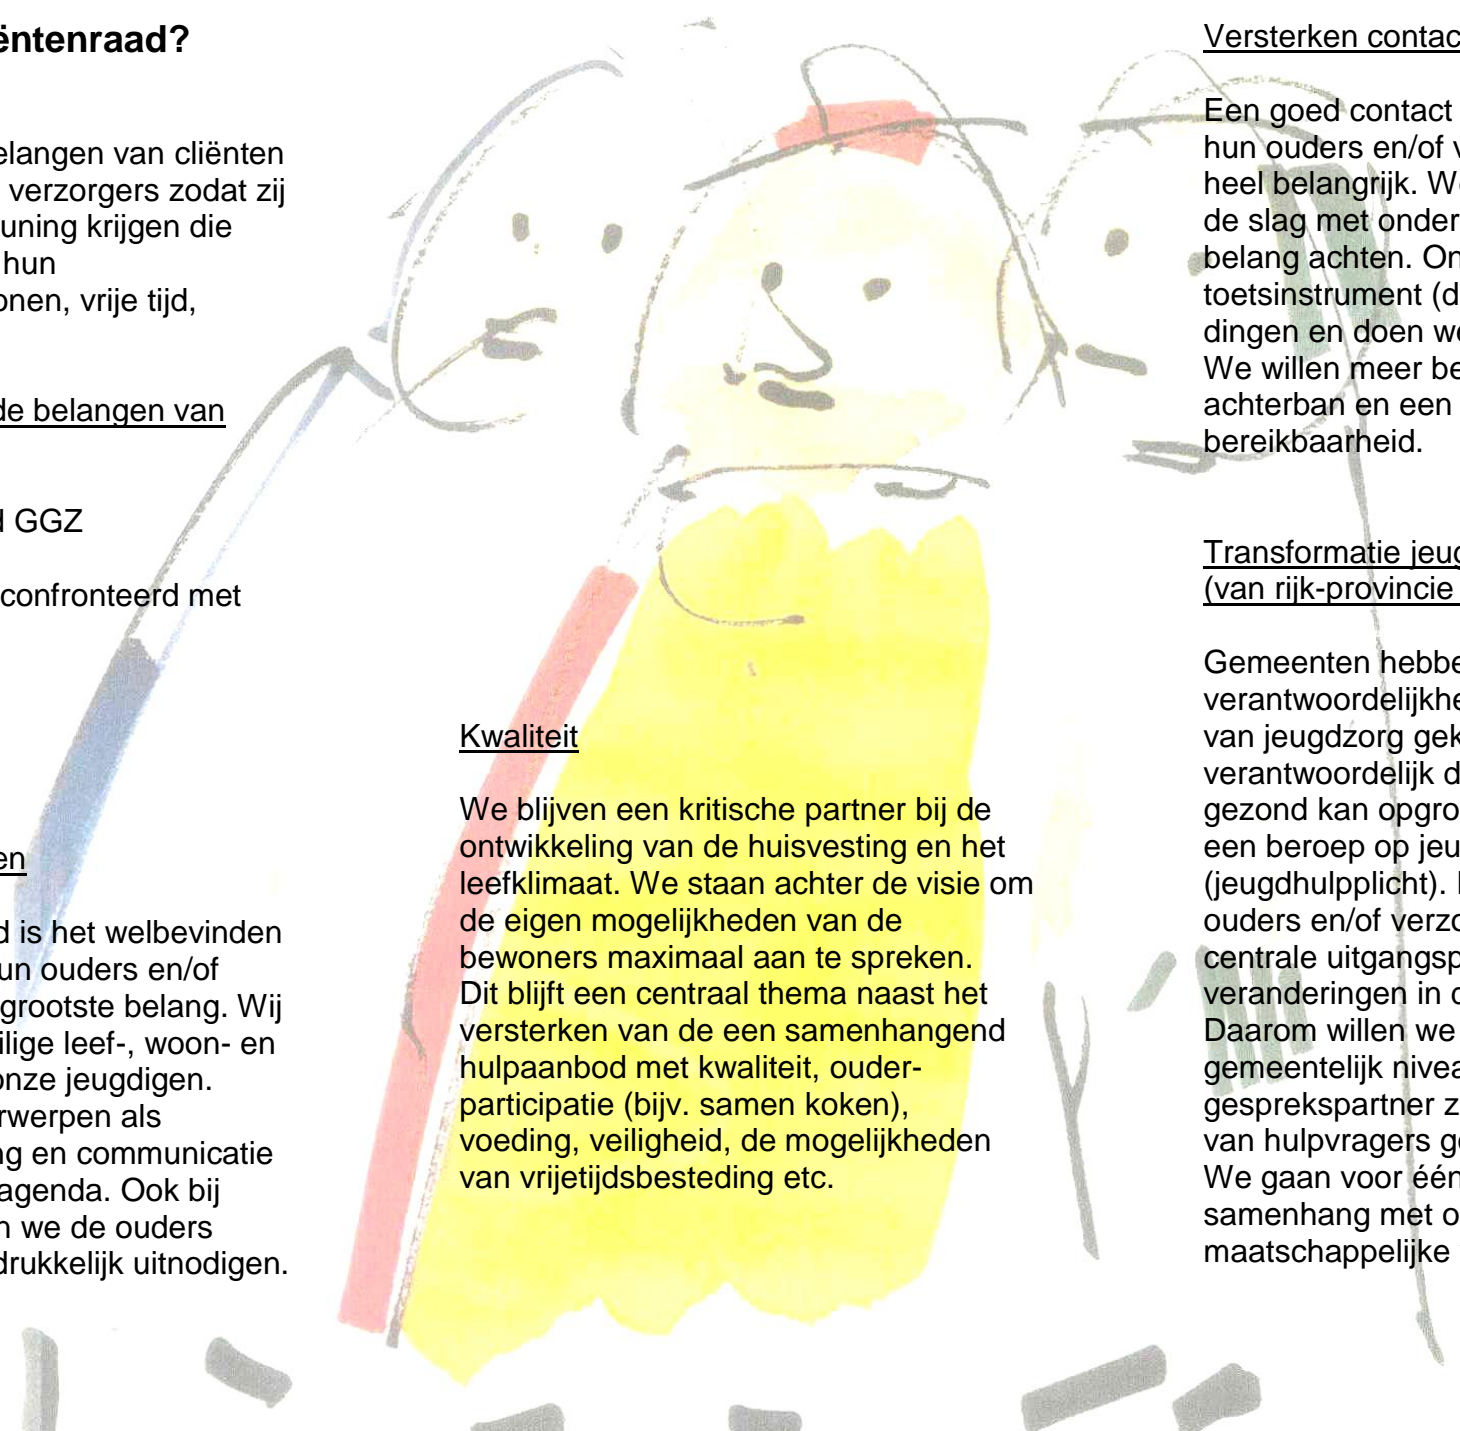 ëntenraad?
elangen van cliënten
verzorgers zodat zij
uning krijgen die
hun
onen, vrije tijd,
de belangen van
d GGZ
confronteerd met
en
d is het welbevinden
un ouders en/of
grootste belang. Wij
ilige leef-, woon- en
onze jeugdigen.
rwerpen als
ng en communicatie
agenda. Ook bij
n we de ouders
drukkelijk uitnodigen.
Kwaliteit
We blijven een kritische partner bij de
ontwikkeling van de huisvesting en het
leefklimaat. We staan achter de visie om
de eigen mogelijkheden van de
bewoners maximaal aan te spreken.
Dit blijft een centraal thema naast het
versterken van de een samenhangend
hulpaanbod met kwaliteit, ouder-
participatie (bijv. samen koken),
voeding, veiligheid, de mogelijkheden
van vrijetijdsbesteding etc.
Versterken contac
Een goed contact
hun ouders en/of v
heel belangrijk. We
de slag met onder
belang achten. On
toetsinstrument (d
dingen en doen we
We willen meer be
achterban en een
bereikbaarheid.
Transformatie jeug
(van rijk-provincie
Gemeenten hebbe
verantwoordelijkhe
van jeugdzorg gek
verantwoordelijk d
gezond kan opgro
een beroep op jeu
(jeugdhulpplicht).
ouders en/of verzo
centrale uitgangsp
veranderingen in d
Daarom willen we
gemeentelijk nivea
gesprekspartner z
van hulpvragers ge
We gaan voor één
samenhang met o
maatschappelijke